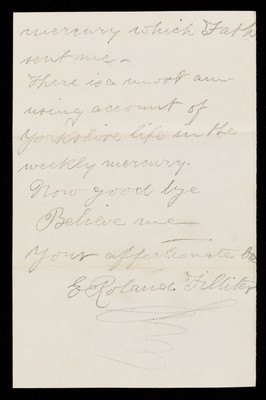 mercury which Fath
sent me –
There is a most am-
using account of
Yorkshire life in the
weekly mercury.
Now good bye
Believe me
Your affectionate
E Roland Filliter